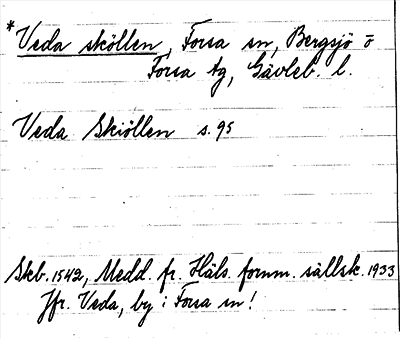 *Veda sköllen, Forsa sn, Bergsjö o
Forsa tg, Gävleb. l.
Veda Skiöllen s. 95
Skb. 1542, Medd. fr. Häls. fornm. sällsk. 1933
Jfr. Veda, by i Forsa sn!